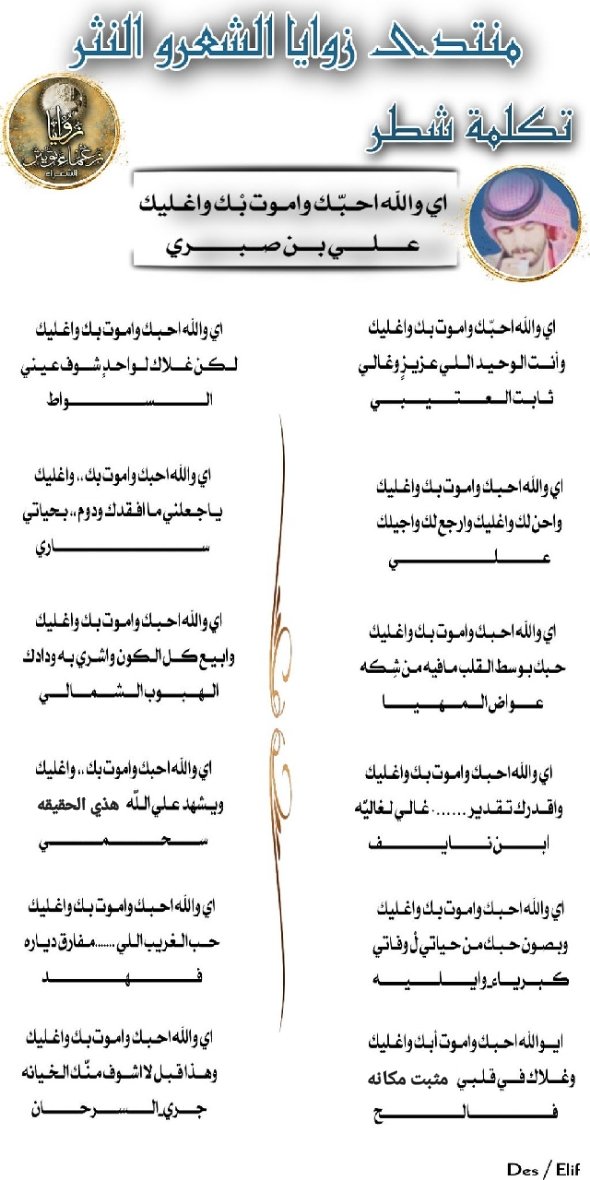 منتدى زوايا الشعر و النثر
تكلمة شطر
زوايا
اي والله احبّك واموت بْك واغليك
علي بن صبري
اي والله احبّك واموت بك واغليك
وأنت الوحيد اللي عزيزٍ وغالي
ثابت العتيبي
اي والله احبك واموت بك واغليك
واحن لك واغليك وارجع لك واجيلك
علي
اي والله احبك واموت بك واغليك
حبك بوسط القلب مافيه من شِكه
عواض المهيا
اي والله احبك واموت بك واغليك
واقدرك تقدير ....... غالي لغاليّه
ابن نايف
اي والله احبك واموت بك واغليك
وبصون حبك من حياتي لْ وفاتي
كبرياء وايليه
ايو الله احبك واموت أبك واغليك
وغلاك في قلبي مثبت مكانه
فالح
اي والله احبك واموت بك واغليك
لكن غلاك لواحدٍ شوف عيني
السواط
اي والله احبك واموت بك ،، واغليك
ياجعلني ما افقدك ودوم ،، بحياتي
ساري
اي والله احبك واموت بك واغليك
وابيع كل الكون واشري به ودادك
الهبوب الشمالي
اي والله احبك واموت بك ،، واغليك
ويشهد علي الله هذي الحقيقه
سحمي
اي والله احبك واموت بك واغليك
حب الغريب اللي .......مفارق دياره
فهد
اي والله احبك واموت بك واغليك
وهذا قبل لا اشوف منّك الخيانه
جري السرحان
Des / Elif